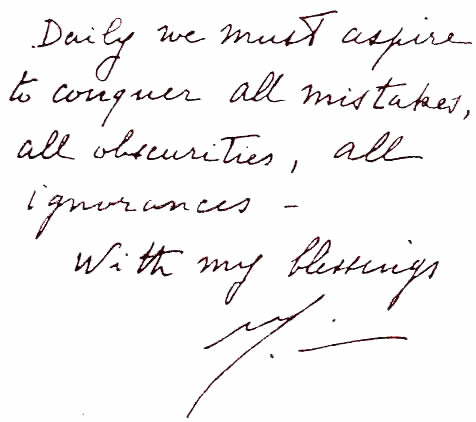 Daily we must aspire
to conquer all mistakes,
all obscurities, all
ignorances -
With my blessings